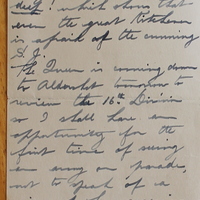 deep! which shows that
even the great Kitchener
is afraid of the cunning
D. J.
The Queen is coming down
to Aldershot tomorrow to
review the 16th Division
so I shall have an
opportunity for the
first time of seeing
an army on parade,
not to speak of a